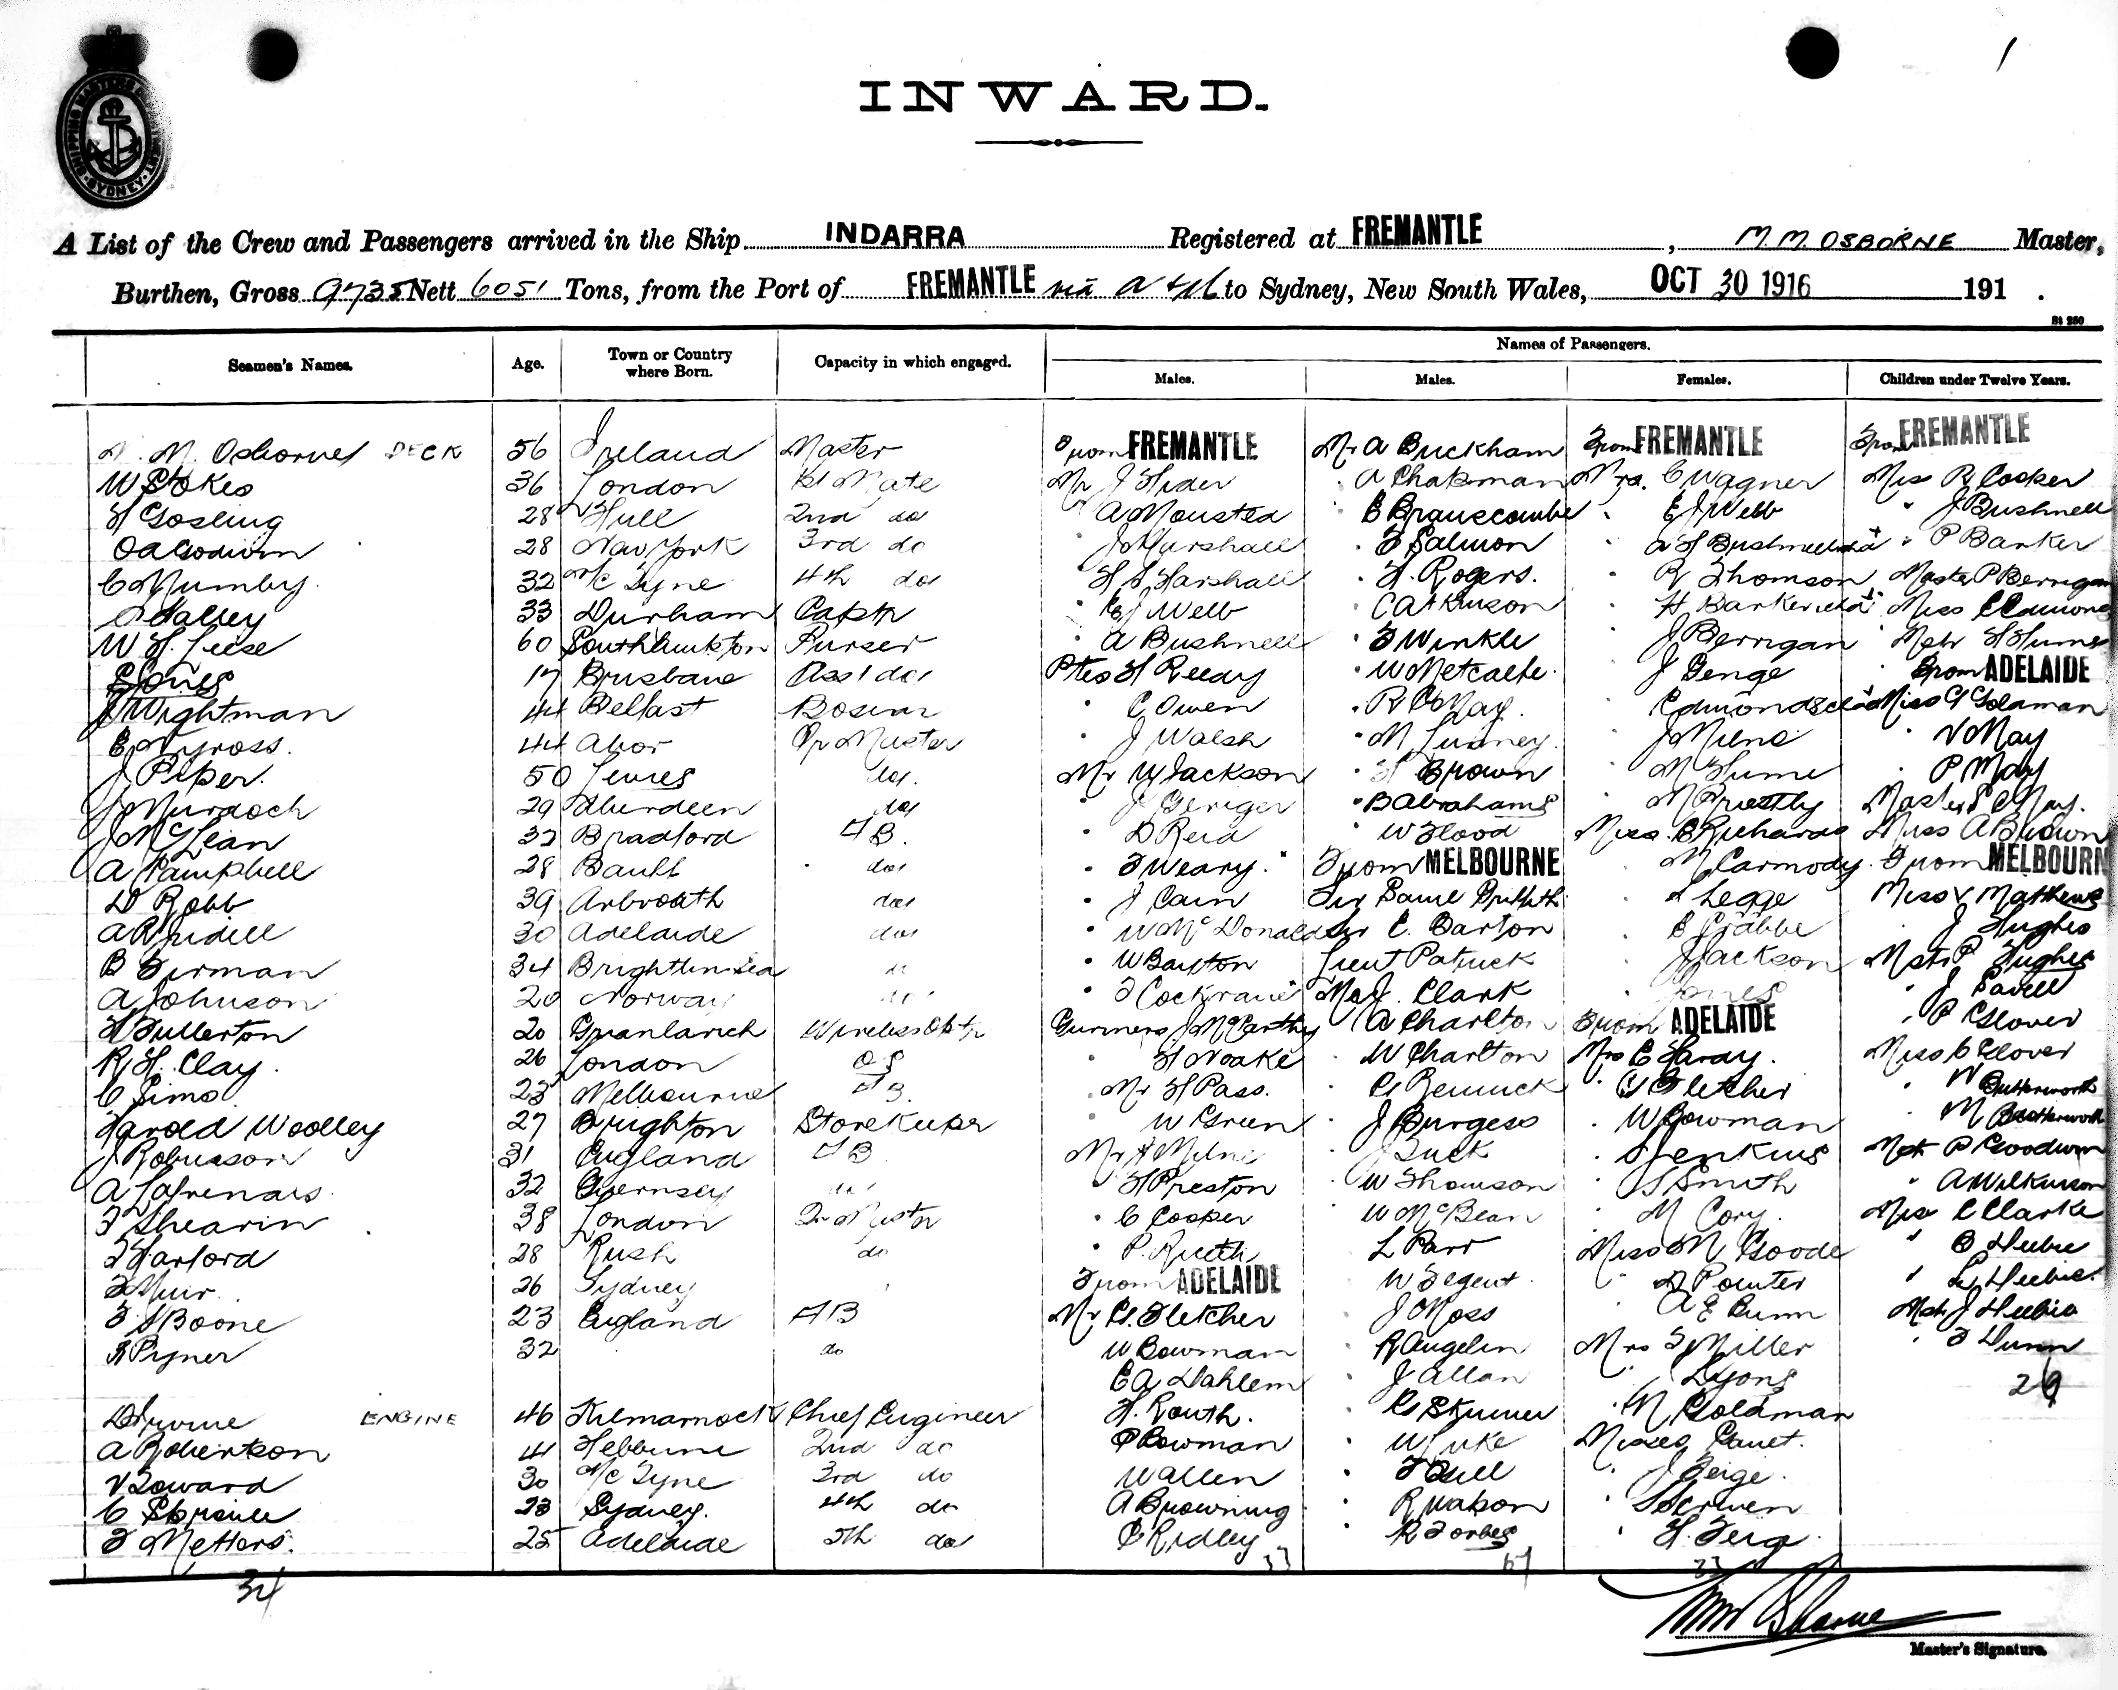 INWARD.
SHIPPING MASTERS SYDNEY
1
A List of the Crew and Passengers arrived in the Ship INDARRA Registered at FREMANTLE, M. M. OSBORNE Master,
Burthen, Gross 9735 Nett 6051 Tons, from the Port of FREMANTLE via to Sydney, New South Wales, OCT 30 1916 191 .
St 250
Seamen's Names. Age. Town or Country where Born. Capacity in which engaged. Names of Passengers.
Males. Males. Females. Children under Twelve Years.
M. Osborne DECK 56 Ireland Master From FREMANTLE Mr A Buckham From FREMANTLE From FREMANTLE
W Stokes 36 London 1st Mate Mr J Hider A Chapman Mrs. C Wagner Miss R Cooker
H Gosling 28 Hull 2nd do A Monsted E Branscombe E J Webb " J Bushnell
O A Godwin 28 New York 3rd do J Marshall F Salmon A H Bushnell " P Barker
C Mumby. 32 N/c Tyne 4th do H S Marshall H. Rogers. R Thomson Master P Berrigan
Halley 33 Durham Cptr E J Webb C Atkinson H Barker Miss C Edmonds
W H. Leese 60 Southampton Purser A Bushnell F Winkle J Berrigan Mstr H Hume
E Jones 17 Brisbane Asst do Ptes H Reedy W Metcalfe. J Genge From ADELAIDE
J Wightman 44 Belfast Bosun C Owen R C May. Edmonds Miss G Goldman
44 Qr Master J Walsh M Lunney. J Milne V May
J Piper. 50 Lewes do. Mr W Jackson H Brown M Hume P May
J Murdoch 29 Aberdeen do J Geriger B Abrahams M Priestly Master S C May.
J McLean 32 Bradford AB. D Reid W Flood Miss. E Richards Miss A Brown
A Campbell 28 Banff do F Weary. From MELBOURNE M Carmody. From MELBOURN
D Robb 39 Arbroath do J Cain Sir Saml Griffith L Legge Miss V Matthews
A R Judell 30 Adelaide do W McDonald Sir E. Barton E Crabbe J Hughes
B Firman 34 Brightlinsea do W Barton Lieut Patrick J Jackson Mstr P Hughes
A Johnson 20 Norway do F Cockrane Maj. Clark Jones " J Pavell
H Fullerton 20 Wireless Optr Gunners J McCarthy A Charlton From ADELAIDE " P Glover
R H. Clay. 26 London OS H Noake W Charlton Mrs C Haray. Miss C Glover
C Sims 23 Melbourne AB Mr H Pass. G Rennick G Fletcher " V Butterworth
Harold Woolley 27 Brighton Storekeeper W Green J Burgess W Bowman M Butterworth
J Robinson 31 England AB Mr A Milne J Buck S Jenkins Mstr P Goodwin
A Lafrenais 32 Guernsey do H Preston W Thomson S Smith " A Wilkinson
F Shearin 38 London Qr Master C Cooper W McBean M Cory. Miss C Clarke
Harford 28 Rush do P. Rueth L Parr Miss M Goode " B Heebie
F Muir. 26 Sydney From ADELAIDE W Segent D Pointer " L Heebie.
F S Boone 23 England AB Mr G. Fletcher J Moss A E Bunn Mstr J Heebie
R Pyner 32 do W Bowman R Angelin Mrs F Miller " F Dunn
E A Dahlem J Allan Lyons 26
D Irvine ENGINE 46 Kilmarnock Chief Engineer H. Routh. G Skinner M Goldman
A Robertson 41 Hebburn 2nd do P Bowman W Luke Misses Canet.
V Toward 30 N/c Tyne 3rd do W Allen F Bull J Feige.
C Sproule 23 Sydney. 4th do A Browning R Watson S Scriven
F Metters. 25 Adelaide 5th do C Ridley R Forbes H. Feig
34 33 67 33
Master's Signature.